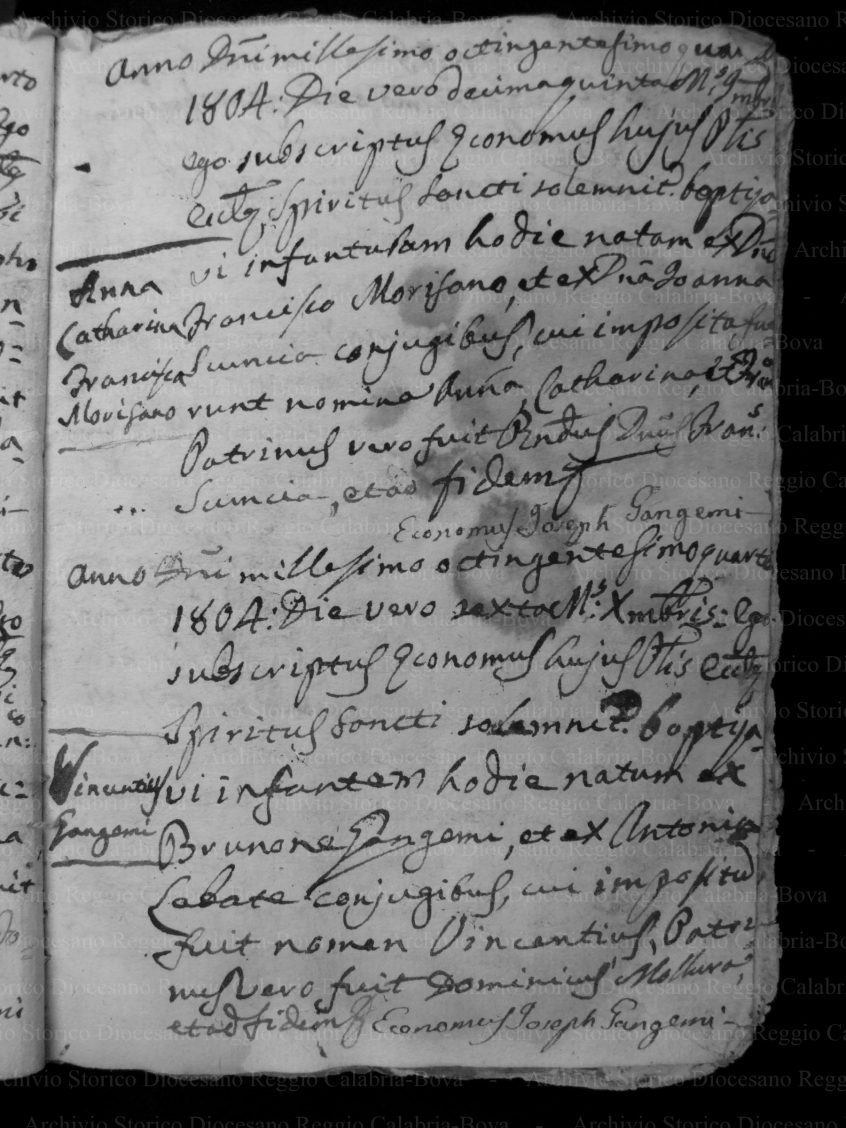 Anno Dñi millesimo octingentesimo quar
1804: Die vero decimaquinta Ms 9mbris
ego subscriptus Economus hujus Plis
Eccle Spiritus Sancti solemnitr baptiza-
vi infantulam hodie natam ex Dño
Anna
Catharina
Francisca
Morisano
Francisco Morisano, et ex Dña Joanna
Scuncia conjugibus, cui imposita fue
runt nomina Anna, Catharina, et
Patrinus vero fuit Rndus Dnus Frans:
Scuncia, et ad fidem
Economus Joseph Gangemi
Anno Dñi millesimo octingentesimo quarto
1804: Die vero sexta Ms: Xmbris: Ego
subscriptus Economus hujus Plis Eccle
Spiritus Sancti solemnitr. baptiza-
Vincentius
Gangemi
vi infantem hodie natum ex
Brunone Gangemi, et ex Antonia
Labate conjugibus, cui impositu
fuit nomen Vincentius, Patri-
nus vero fuit Dominicus
et ad fidem Economus Joseph Gangemi
Archivio Storico Diocesano Reggio Calabria-Bova